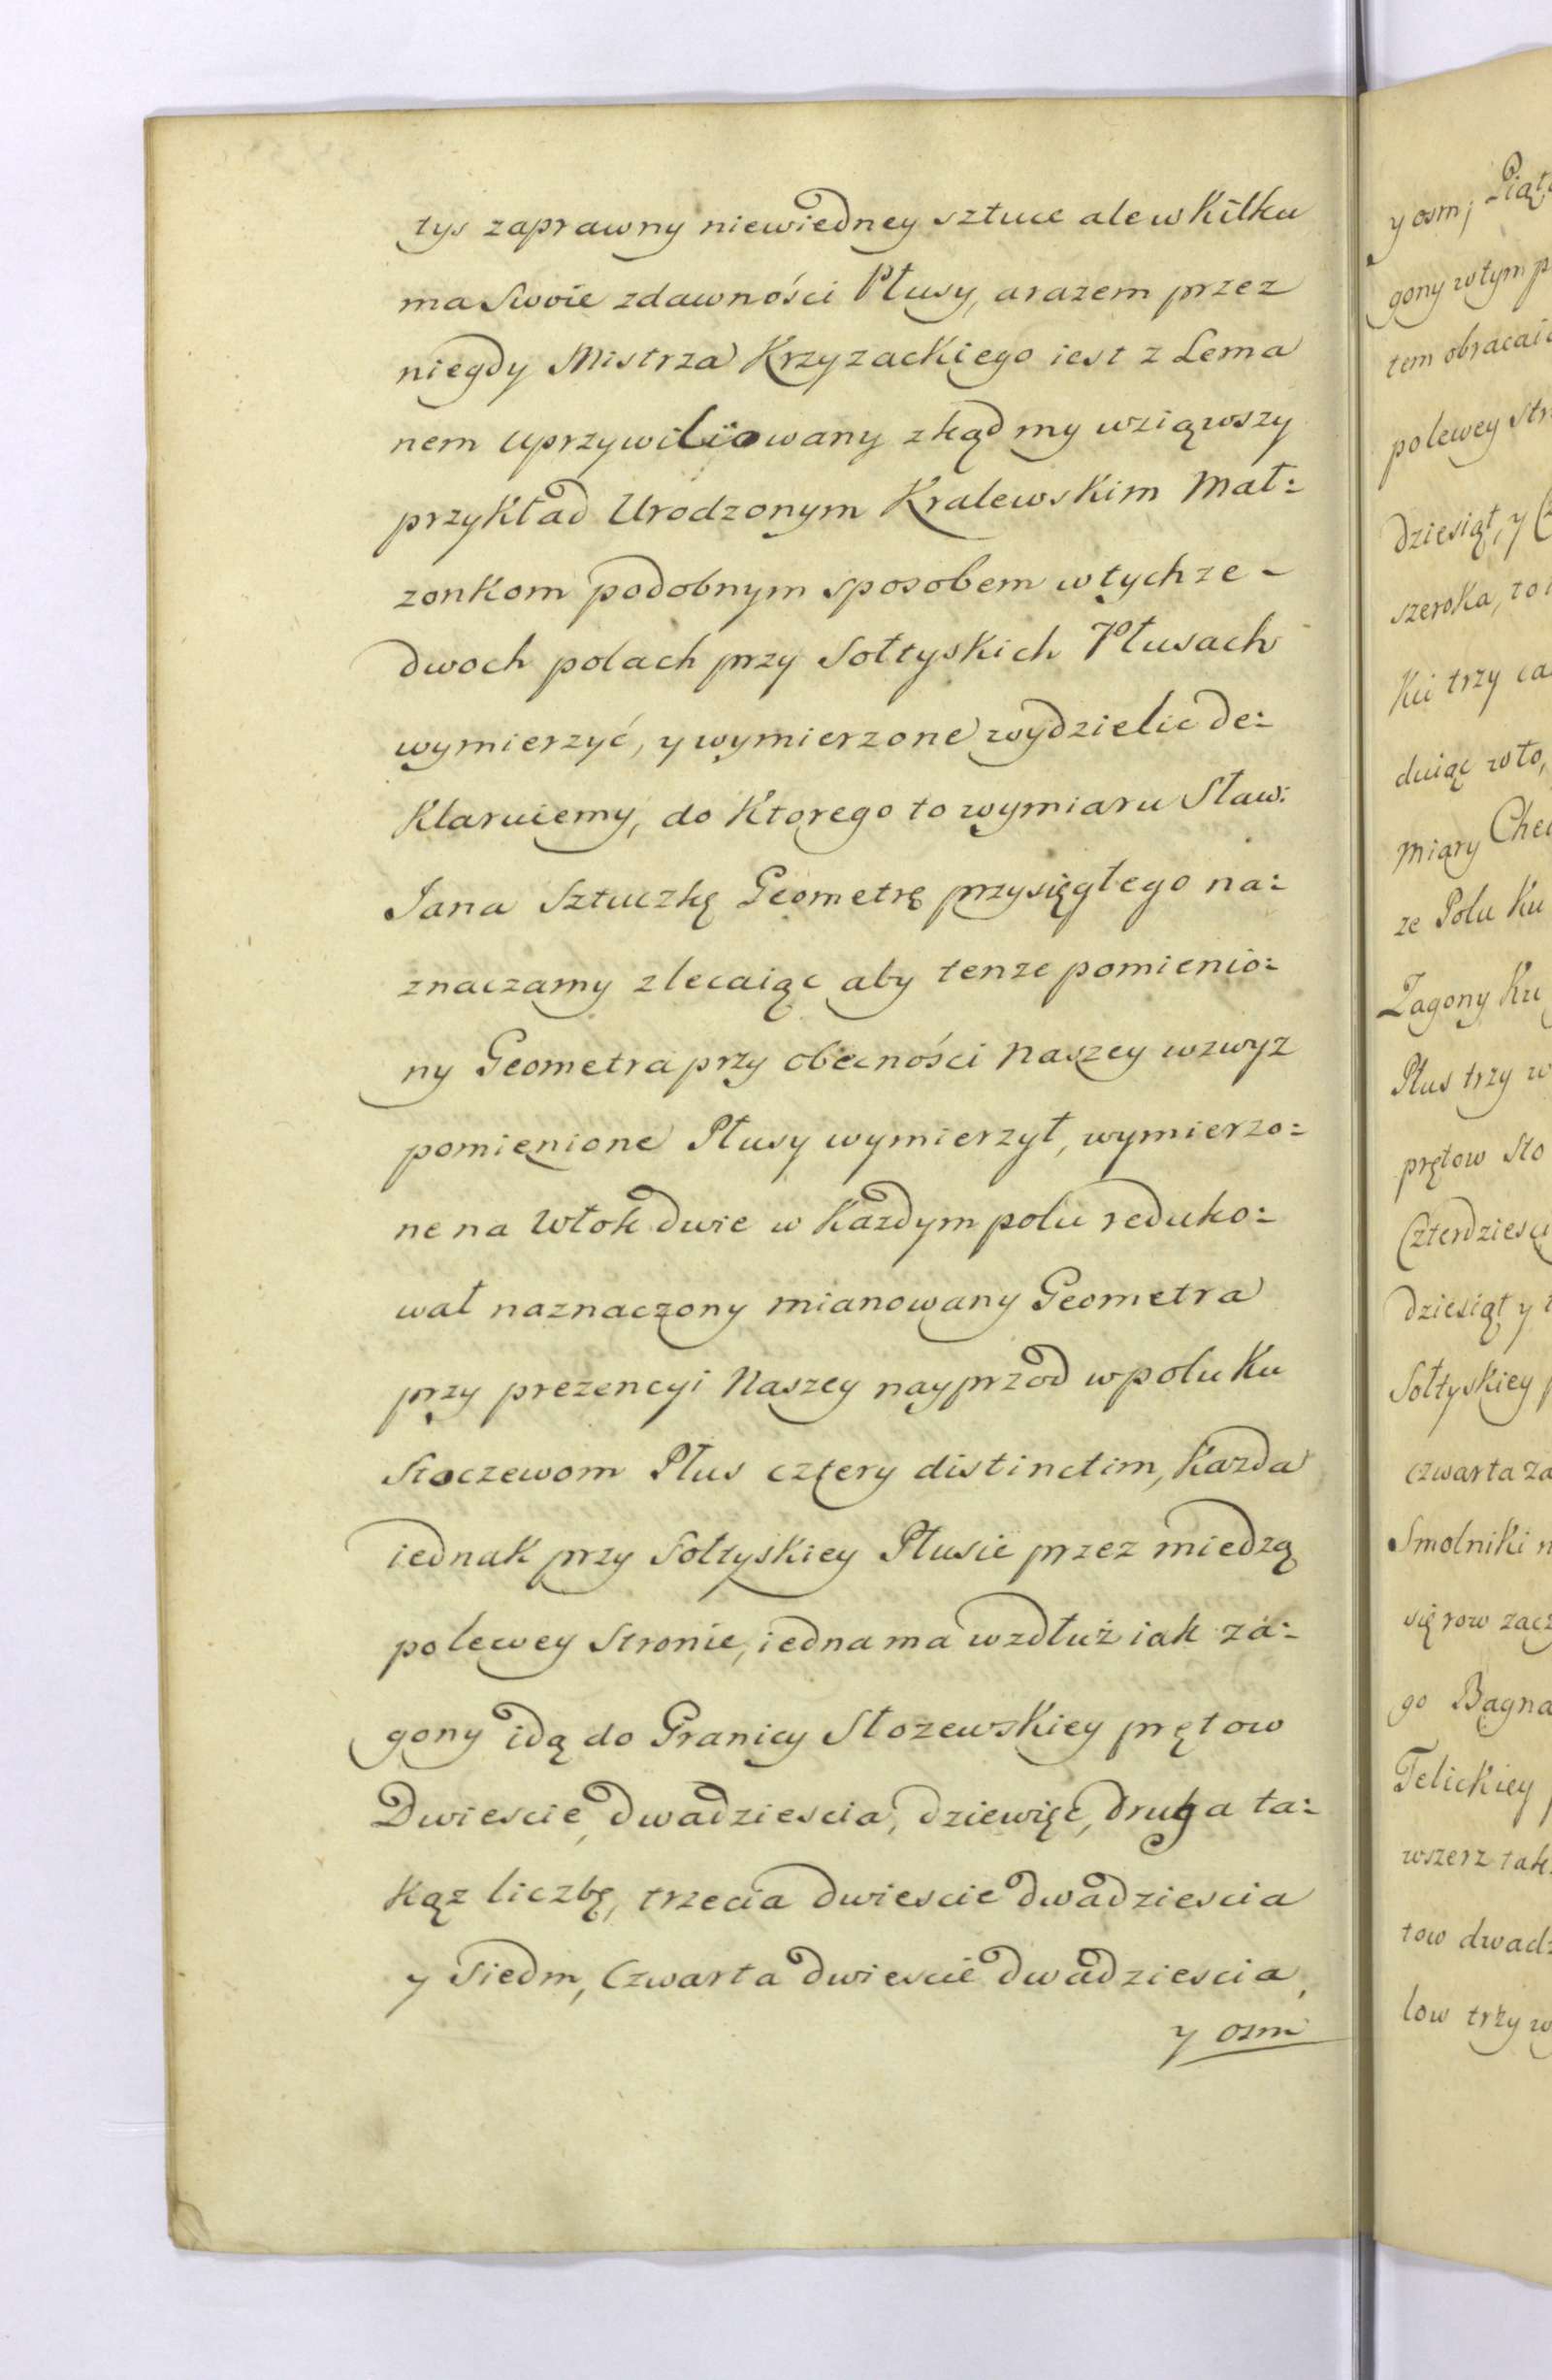 tys zaprawny niewiedney sztuce ale w kilku
ma Swoie zdawności Płusy, arazem przez
niegdy Mistrza Krzyzackiego iest z Lema
nem uprzywiliiowany zkąd my wziąwszy
przykład Urodzonym Kralewskim Mał:
zonkom podobnym sposobem w tychze -
dwoch polach przy Sołtyskich Płusach
wymierzyć, y wymierzone wydzielic de:
klaruiemy, do Ktorego to wymiaru Sław:
Jana Sztuczkę Geometrę przysięgłego na:
znaczamy zlecaiąc aby tenze pomienio:
ny Geometra przy obecności Naszey wzwyz
pomienione Płusy wymierzył, wymierzo:
ne na Włok dwie w Kazdym polu reduko:
wał naznaczony mianowany Geometra
przy prezencyi Naszey nayprzod w polu Ku
Stoczewom Płus cztery distinctim, Kazda
iednak przy Sołtyskiey Płusie przez miedzą
polewey Stronie, iedna ma wzdłuż iak za:
gony idą do Granicy Stozewskiey prętow
Dwiescie, dwadziescia, dziewięc, druga ta:
kąz liczbę, trzecia dwiescie dwadziescia
y Siedm, Czwarta dwiescie dwadziescia,
y osm
y osm; Piąt
gony w tym p
tem obracai
polewey Str
dziesiąt, y
szeroka, to
Ku trzy ca
duiąc w to,
miary Che
ze Polu Ku
Zagony Ku
Płus trzy w
prętow Sto
Czterdziesci
dziesiąt y
Sołtyskiey p
czwarta za
Smolniki n
się row zacz
go Bagna
Telickiey p
wszerz tak
tow dwadz
low trzy w